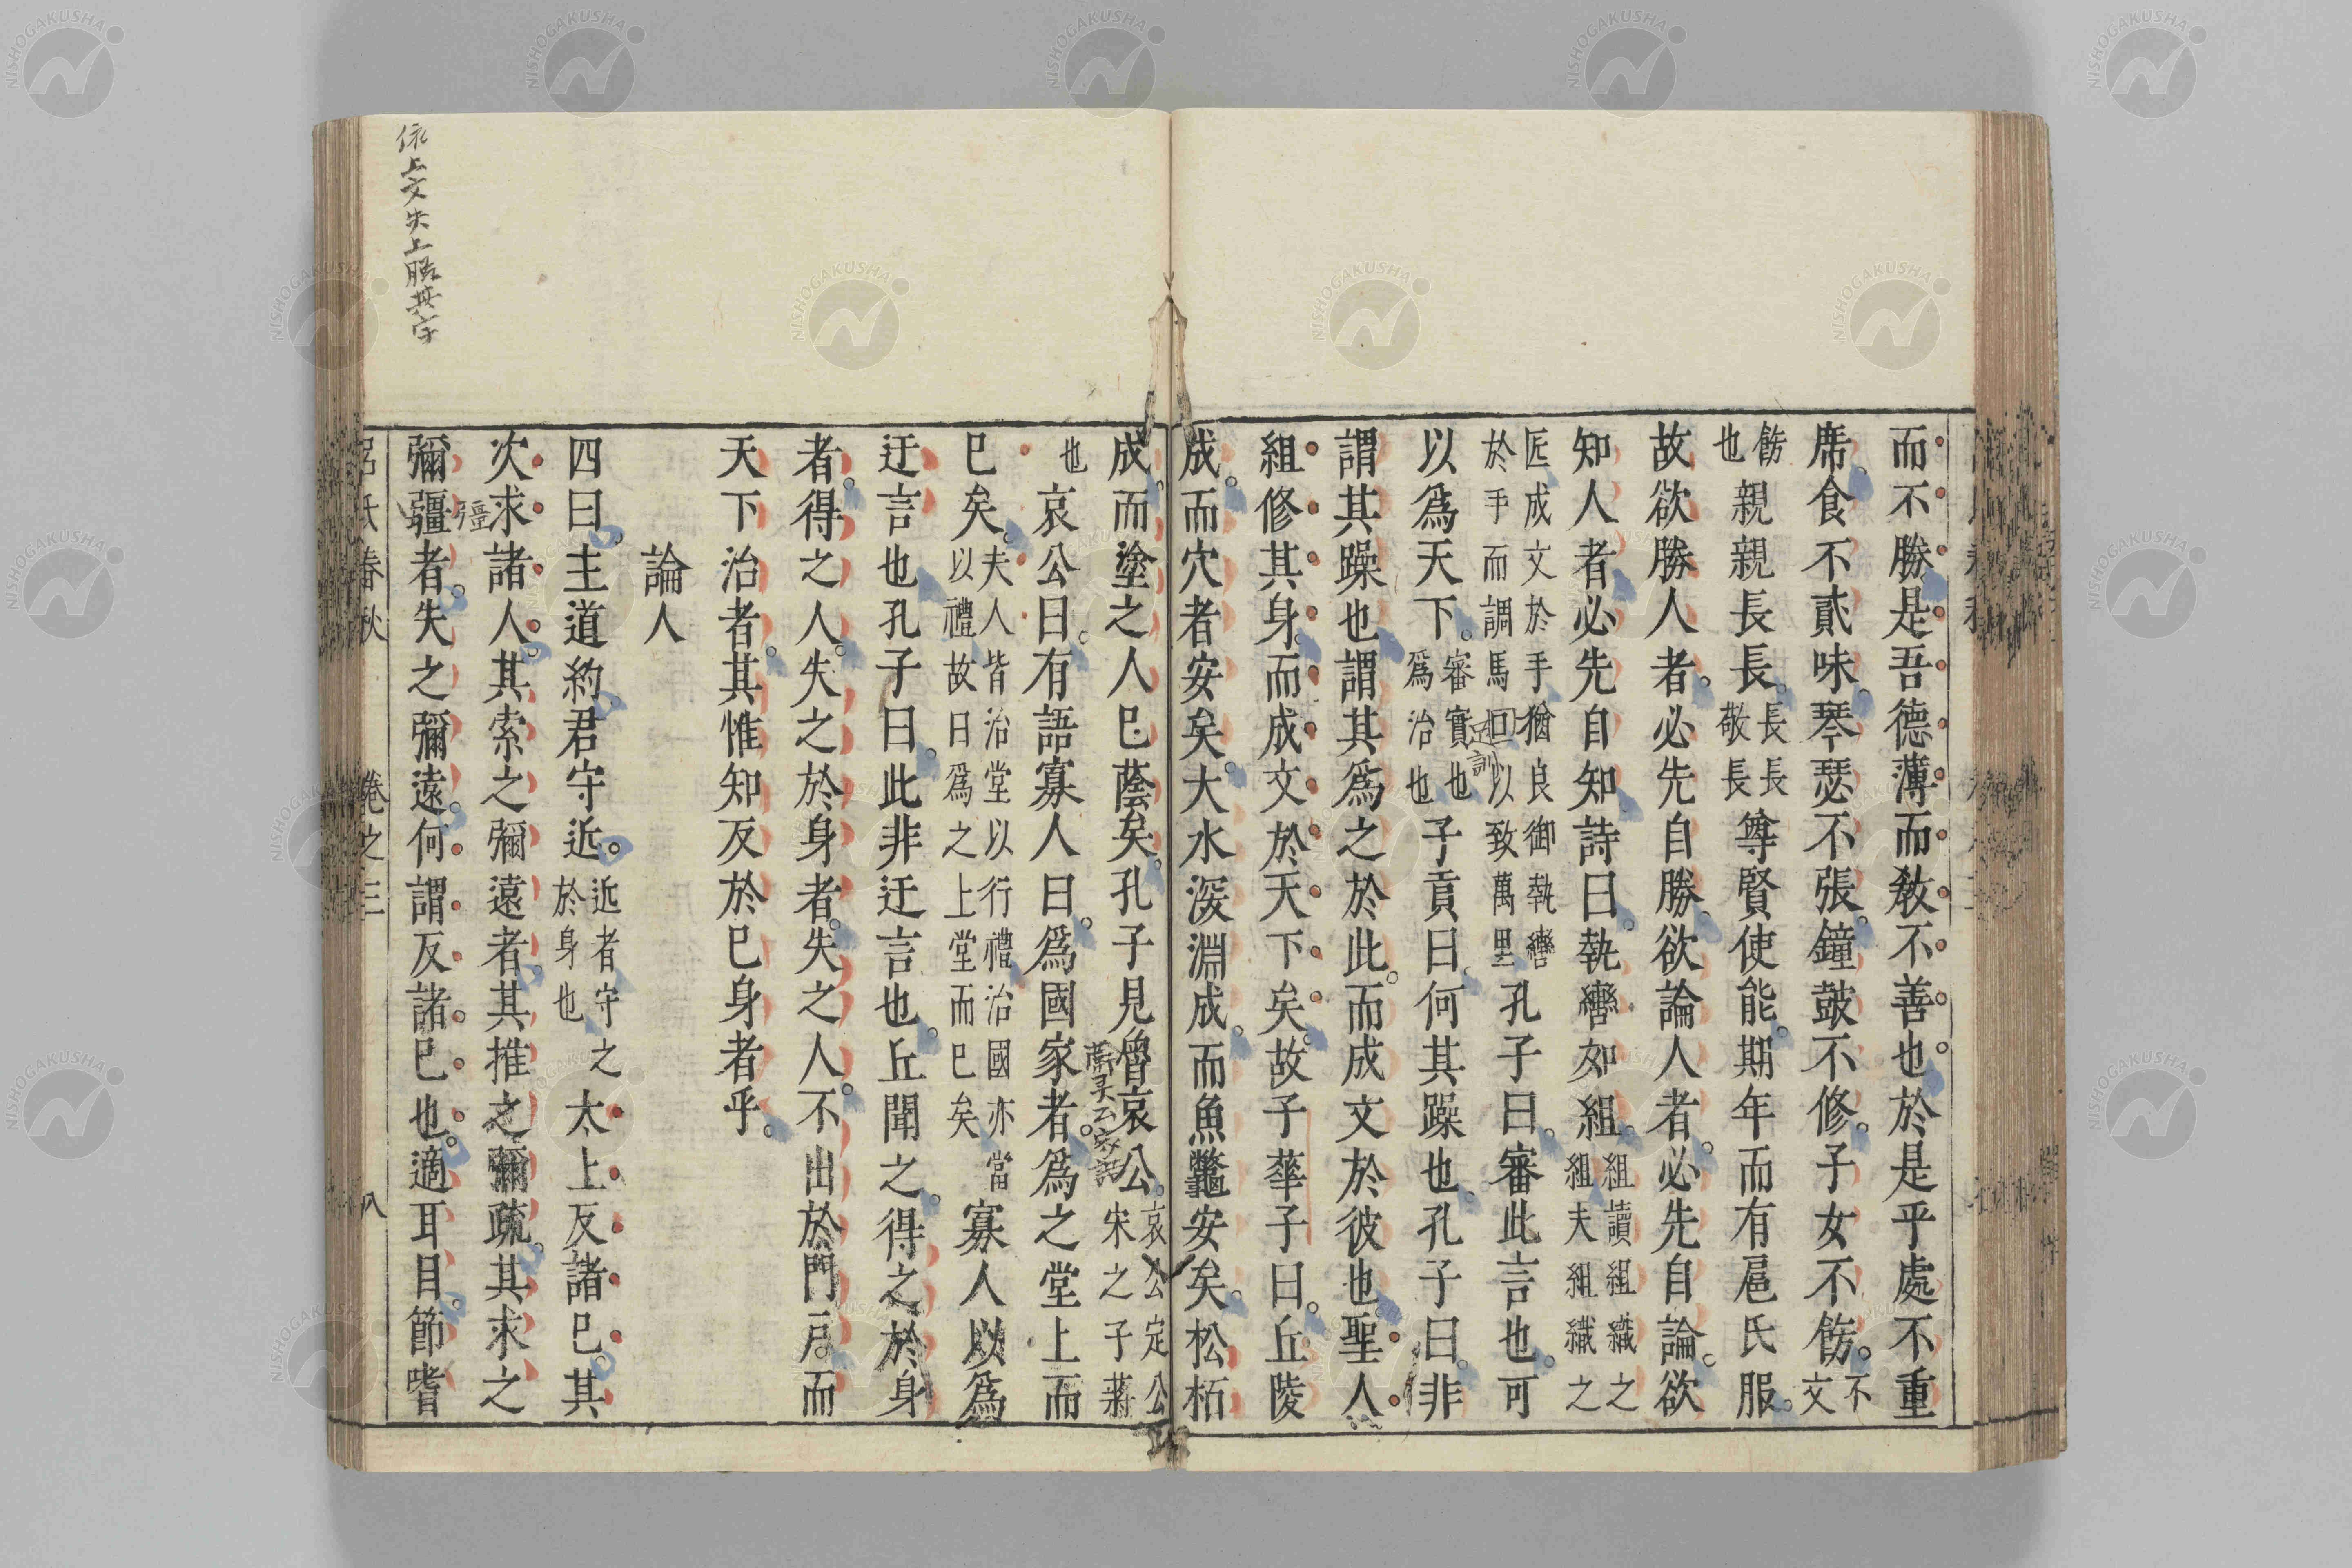 而不勝是吾德薄而教不善也於是乎處不重
席食不貳味琴瑟不張鐘鼓不修子女不飭不文
飭也親親長長長長敬長尊賢使能期年而有扈氏服
故欲勝人者必先自勝欲論人者必先自論欲
知人者必先自知詩曰執轡如組組讀組織之組夫組織之
匠成文於手猶良御執轡於手而調馬口以致萬里孔子曰審此言也可
以爲天下審實也爲治也子貢曰何其躁也孔子曰非
謂其躁也謂其爲之於此而成文於彼也聖人
組修其身而成文於天下矣故子華子曰丘陵
成而穴者安矣大水深淵成而魚鼈安矣松柏
成而塗之人已蔭矣孔子見魯哀公哀公定公宋之子蔣
也哀公曰有語寡人曰爲國家者爲之堂上而
已矣夫人皆治堂以行禮治國亦當以禮故曰爲之上堂而已矣寡人以爲
迂言也孔子曰此非迂言也丘聞之得之於身
者得之人失之於身者失之人不出於門戶而
天下治者其惟知反於已身者乎
論人
四曰主道約君守近近者守之於身也太上反諸已其
次求諸人其索之彌遠者其推之彌疏其求之
彌疆者失之彌遠何謂反諸已也適耳目節嗜
呂氏春秋 卷之三 八
依上文失上脱其字
彊